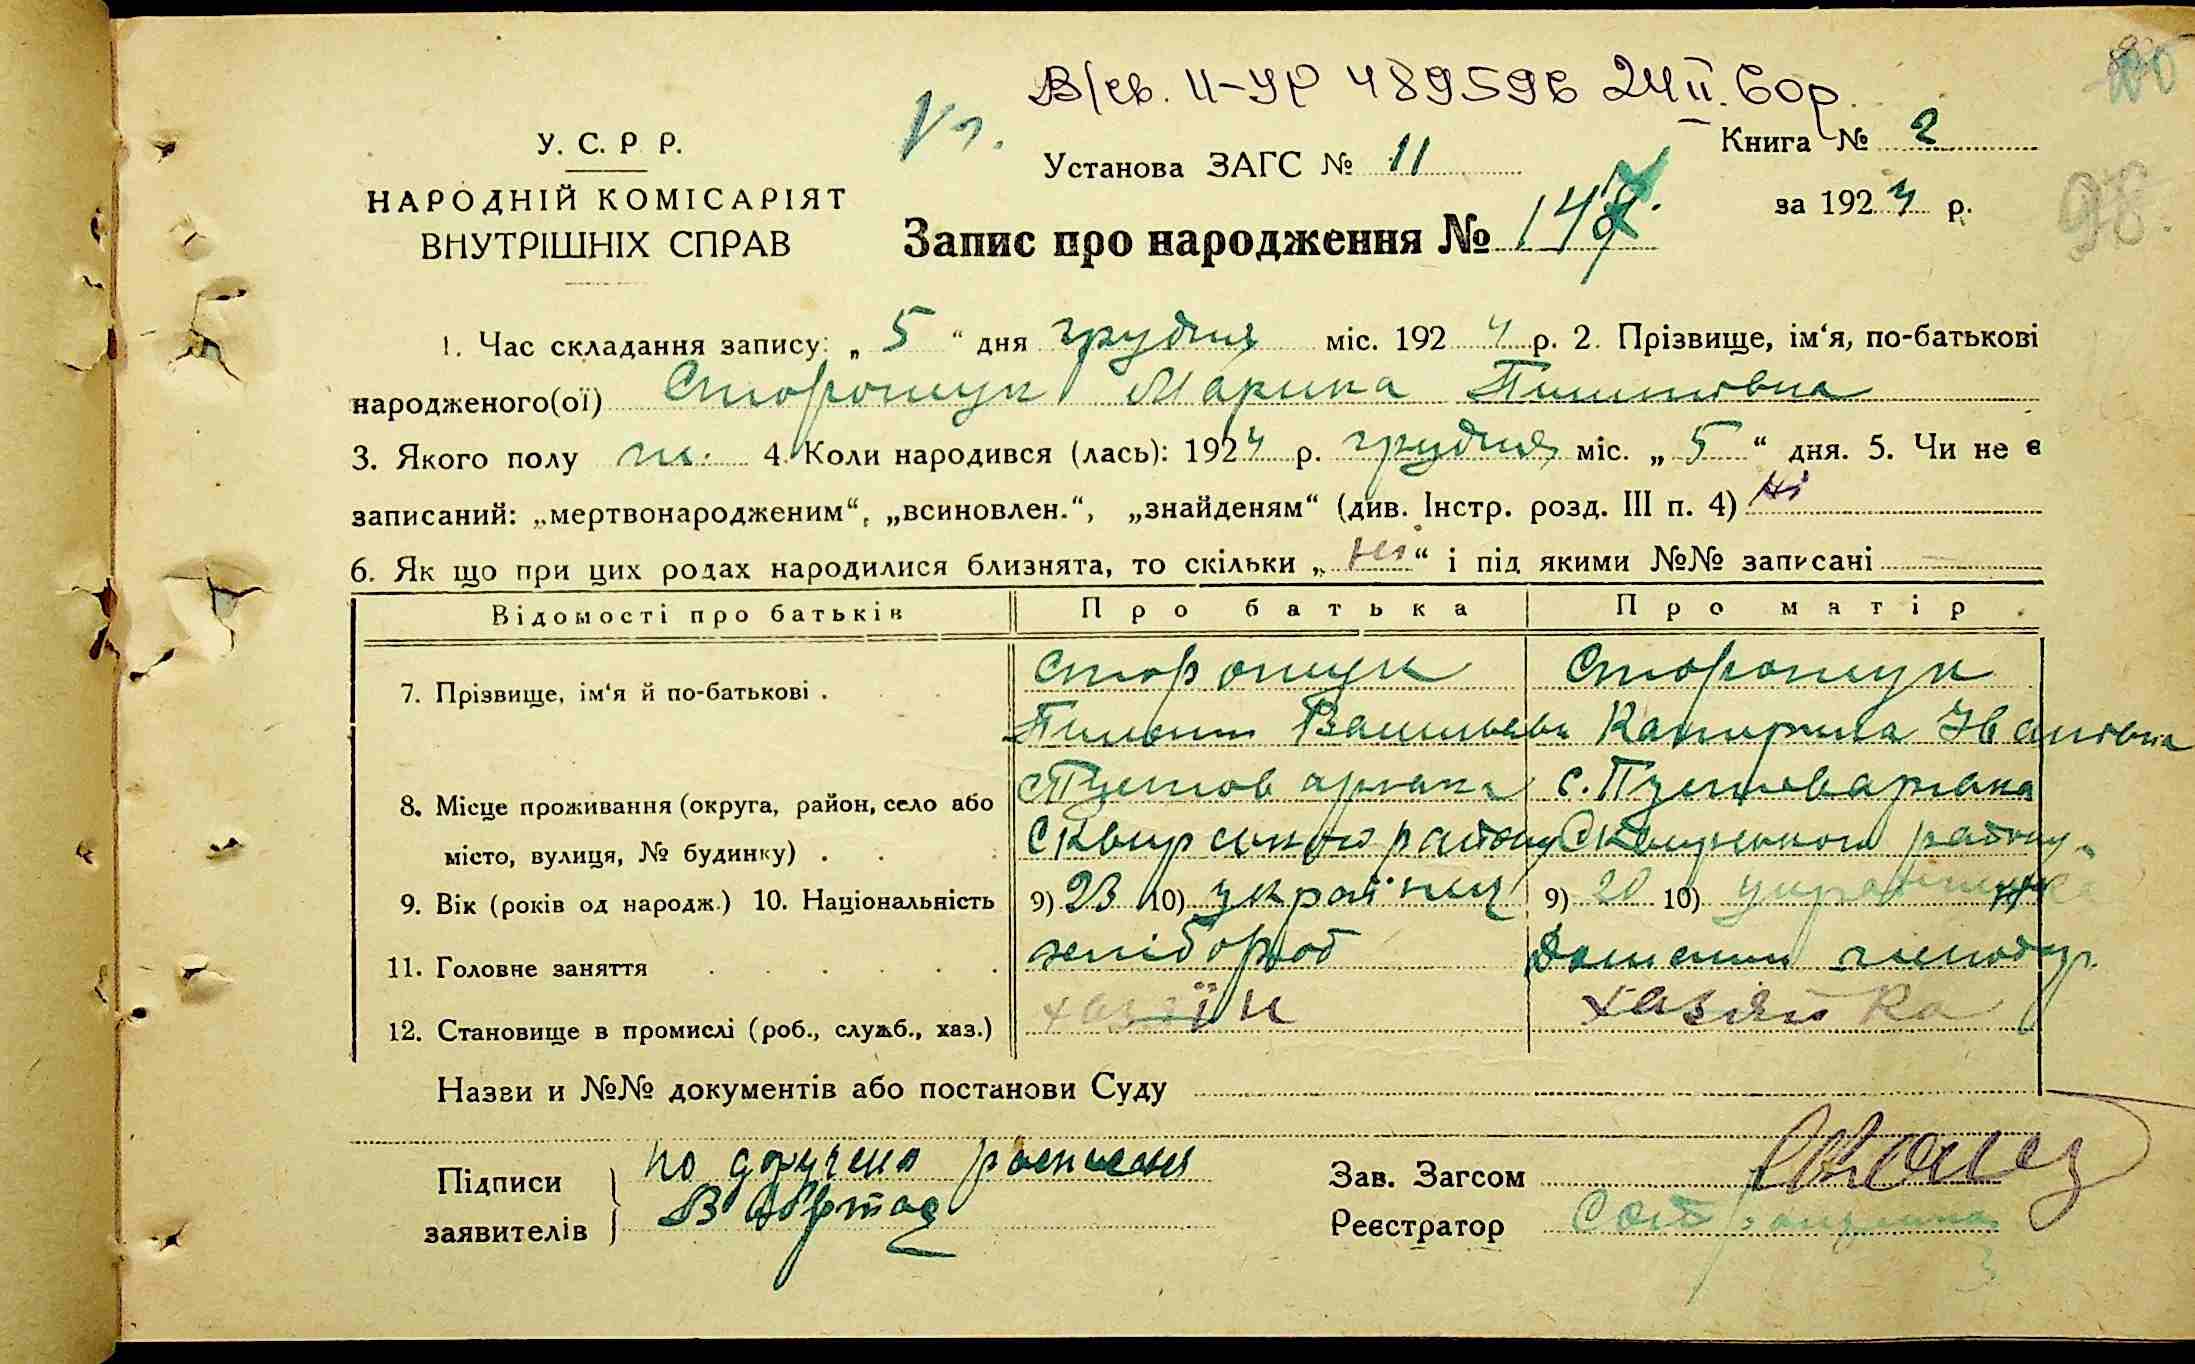 В/св. II-УР 489596 24 II. 60р.
У. С. Р Р.
НАРОДНІЙ КОМІСАРІЯТ
ВНУТРІШНІХ СПРАВ
Установа ЗАГС № 11
Книга № 2
за 1924 р.
98.
Запис про народження № 147
1. Час складання запису: „ 5 “ дня грудня міс. 1924 р. 2. Прізвище, ім‘я, по-батькові
народженого(ої) Сторощук Марина Пилипівна
3. Якого полу ж. 4. Коли народився (лась): 1924 р. грудня міс. „ 5 “ дня. 5. Чи не є
записаний: „мертвонародженим“, „всиновлен.“, „знайденям“ (див. Інстр. розд. III п. 4) Ні
6. Як що при цих родах народилися близнята, то скільки „ Ні “ і під якими №№ записані —
Відомості про батьків Про батька Про матір
7. Прізвище, ім‘я й по-батькові . Сторощук Сторощук
Пилип Васильев Катерина Івановна
8. Місце проживання (округа, район, село або с. Пустоварівка
місто, вулиця, № будинку) . Сквирського району Сквирського району
9. Вік (років од народж.) 10. Національність 9) 23 10) українец 9) 20 10) украинка
11. Головне заняття хлібороб Домашнее
12. Становище в промислі (роб., служб., хаз.) хазяїн хазяйка
Назви и №№ документів або постанови Суду
Підписи
заявителів
по
Зав. Загсом
Реєстратор